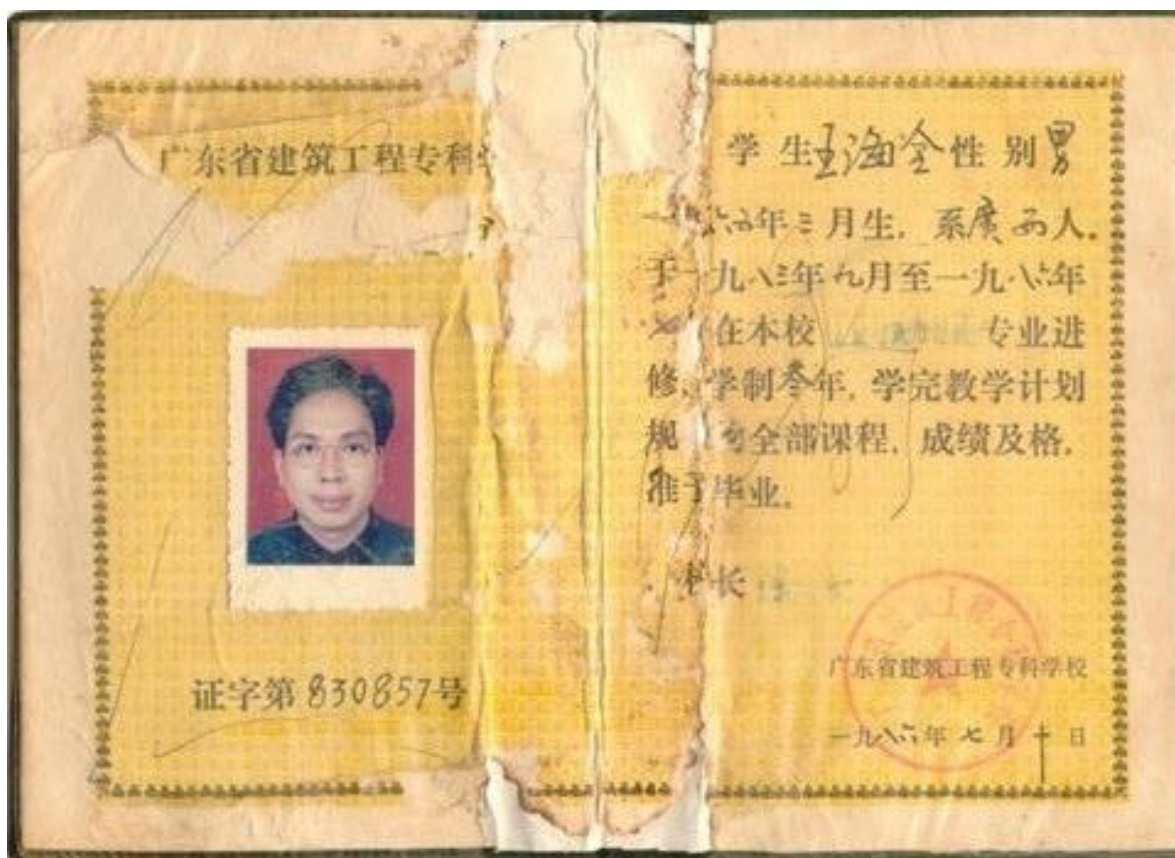 广东省建筑工程专科
证字第830857号
学生王海全性别男
一 六五年三月生，系廣西人。
于一九八三年九月至一九八六年
七 在本校 专业进
修，学制叁年，学完教学计划
规 的全部课程，成绩及格，
准予毕业。
校长
广东省建筑工程专科学校
一九八六年七月十日